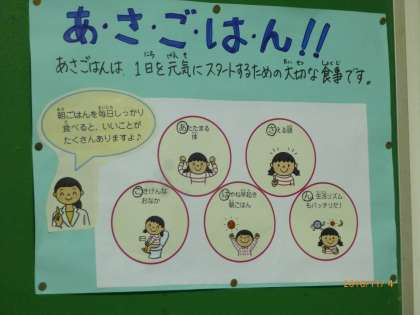 あ・さ・ご・は・ん!!
あさごはんは、1日を元気にスタートするための大切な食事です。
朝ごはんを毎日しっかり
食べると、いいことが
たくさんありますよ♪
あたたまる
体
さえる頭
ごきげんな
おなか
はやね早起き
朝ごはん
ん 生活リズム
もバッチリだ!
2016/11/4